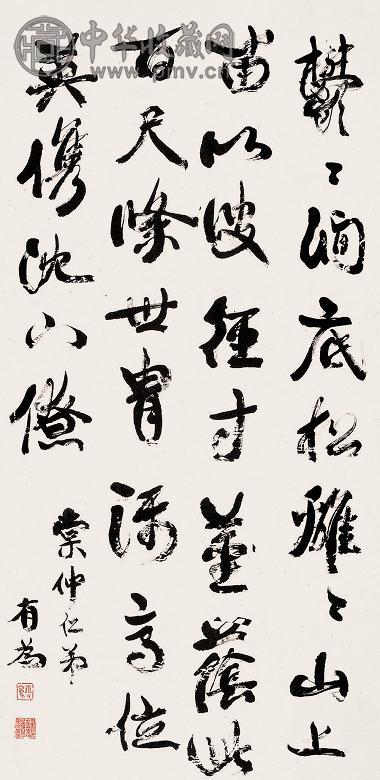 中华收藏网
www.pmv.cn
鬱〻澗底松離〻山上
苗以彼徑寸莖蔭此
百尺條世胄躡高位
英儁沈下僚
棠仲仁弟
有為